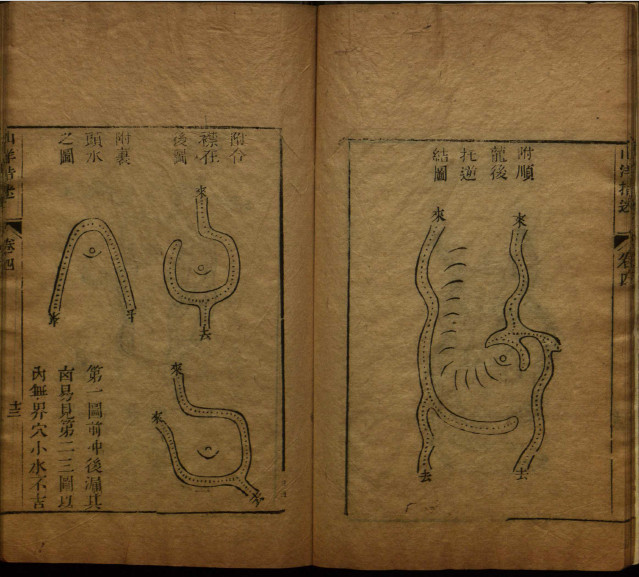 附順
龍後
托逆
結圖
來
來
去
去
卷四
附合
襟在
後圖
附裹
頭水
之圖
來
去
來
來
去
第一圖前冲後漏其
凶易見第二三圖以
內無界穴小水不吉
卷四
十三